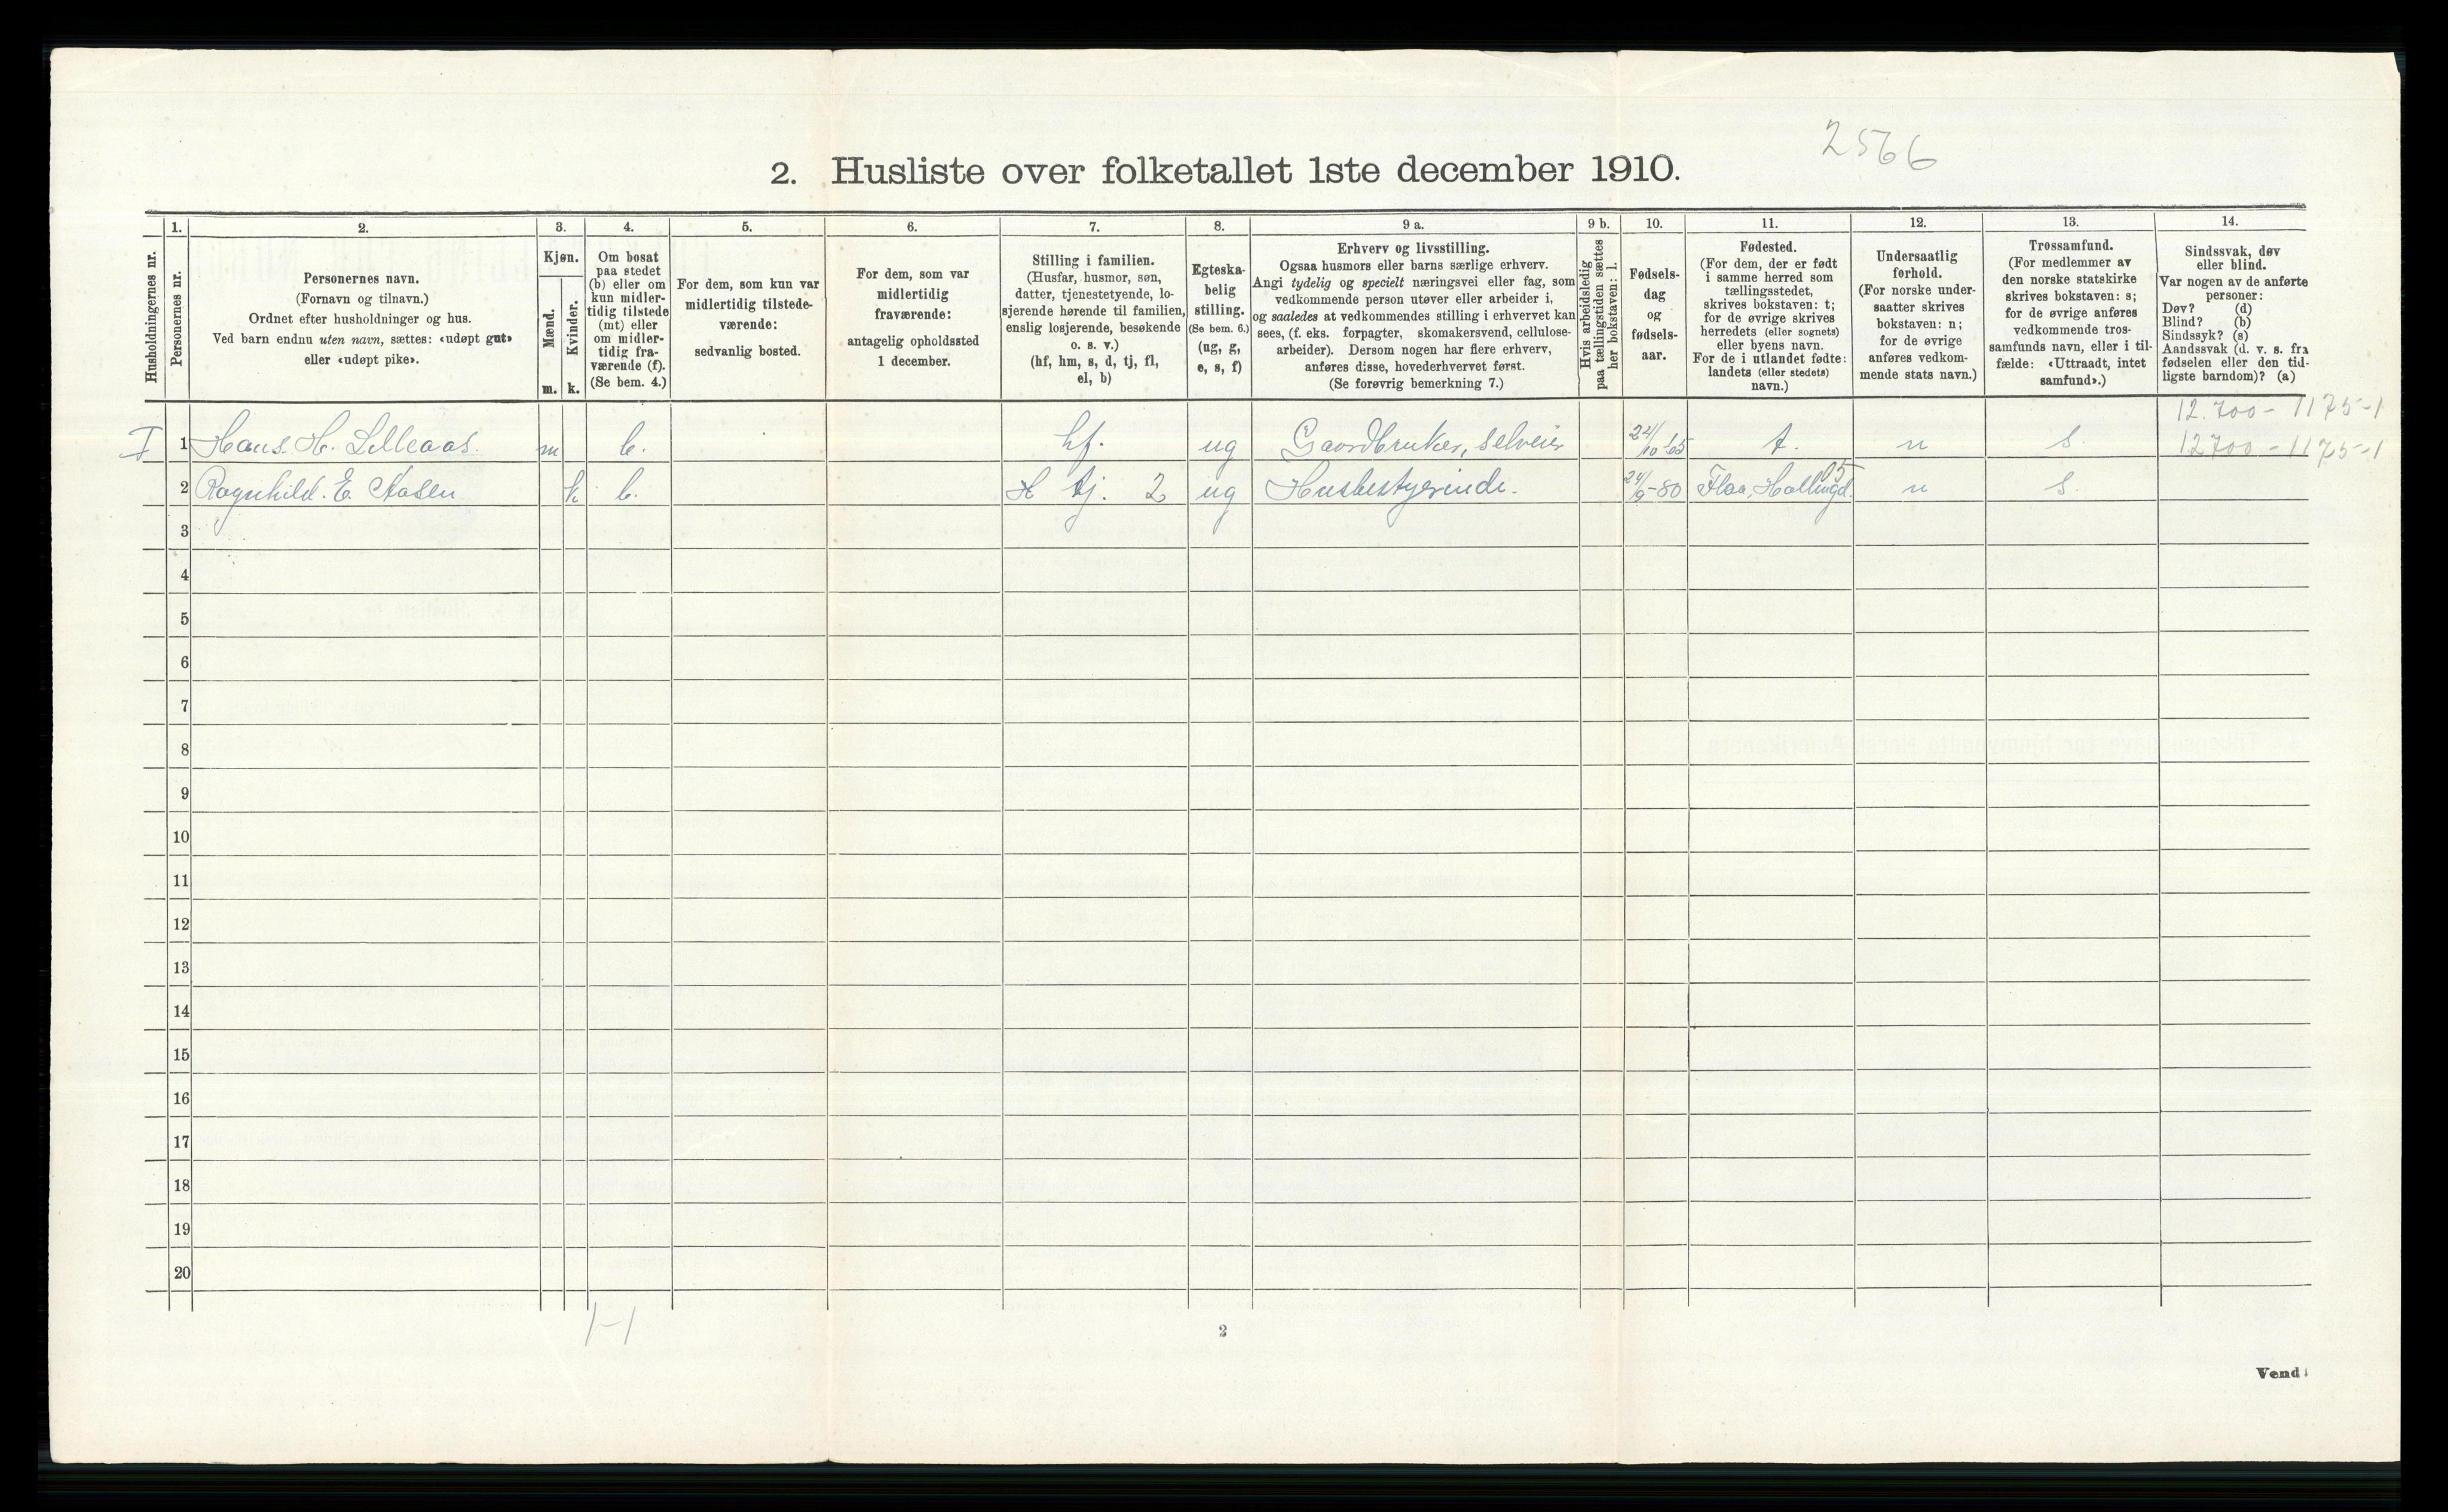 2566
2. Husliste over folketallet 1ste december 1910.
Husholdningernes nr.
1.
Personernes nr.
2.
Personernes navn.
(Fornavn og tilnavn.)
Ordnet efter husholdninger og hus.
Ved barn endnu uten navn, sættes: «udøpt gut»
eller «udøpt pike».
3.
Kjøn.
Mænd.
m.
Kvinder.
k.
4.
Om bosat
paa stedet
(b) eller om
kun midler-
tidig tilstede
(mt) eller
om midler-
tidig fra-
værende (f).
(Se bem. 4.)
5.
For dem, som kun var
midlertidig tilstede-
værende:
sedvanlig bosted.
6.
For dem, som var
midlertidig
fraværende:
antagelig opholdssted
1 december.
7.
Stilling i familien.
(Husfar, husmor, søn,
datter, tjenestetyende, lo-
sjerende hørende til familien,
enslig losjerende, besøkende
o. s. v.)
(hf, hm, s, d, tj, fl,
el, b)
8.
Egteska-
belig
stilling.
(Se bem. 6.)
(ug, g,
e, s, f)
9 a.
Erhverv og livsstilling.
Ogsaa husmors eller barns særlige erhverv.
Angi tydelig og specielt næringsvei eller fag, som
vedkommende person utøver eller arbeider i,
og saaledes at vedkommendes stilling i erhvervet kan
sees, (f. eks. forpagter, skomakersvend, cellulose-
arbeider). Dersom nogen har flere erhverv,
anføres disse, hovederhvervet først.
(Se forøvrig bemerkning 7.)
9 b.
Hvis arbeidsledig
paa tællingstiden sættes
her bokstaven: l.
10.
Fødsels-
dag
og
fødsels-
aar.
11.
Fødested.
(For dem, der er født
i samme herred som
tællingsstedet,
skrives bokstaven: t;
for de øvrige skrives
herredets (eller sognets)
eller byens navn.
For de i utlandet fødte:
landets (eller stedets)
navn.)
12.
Undersaatlig
forhold.
(For norske under-
saatter skrives
bokstaven: n;
for de øvrige
anføres vedkom-
mende stats navn.)
13.
Trossamfund.
(For medlemmer av
den norske statskirke
skrives bokstaven: s;
for de øvrige anføres
vedkommende tros-
samfunds navn, eller i til-
fælde: «Uttraadt, intet
samfund».)
14.
Sindssvak, døv
eller blind.
Var nogen av de anførte
personer:
Døv? (d)
Blind? (b)
Sindssyk? (s)
Aandssvak (d. v. s. fra
fødselen eller den tid-
ligste barndom)? (a)
12.700 - 1175-1
I 1 Hans H. Lilleaas. m b. hf. ug Gaardbruker, selveier 24/10-65 t. n s. 12700 - 1175-1
2 Ragnhild. E. Aasen k b. H tj. 2 ug Husbestyerinde. 24/9-80 Flaa, Hallingd. 05 n s.
3
4
5
6
7
8
9
10
11
12
13
14
15
16
17
18
19
20
1-1
2
Vend!